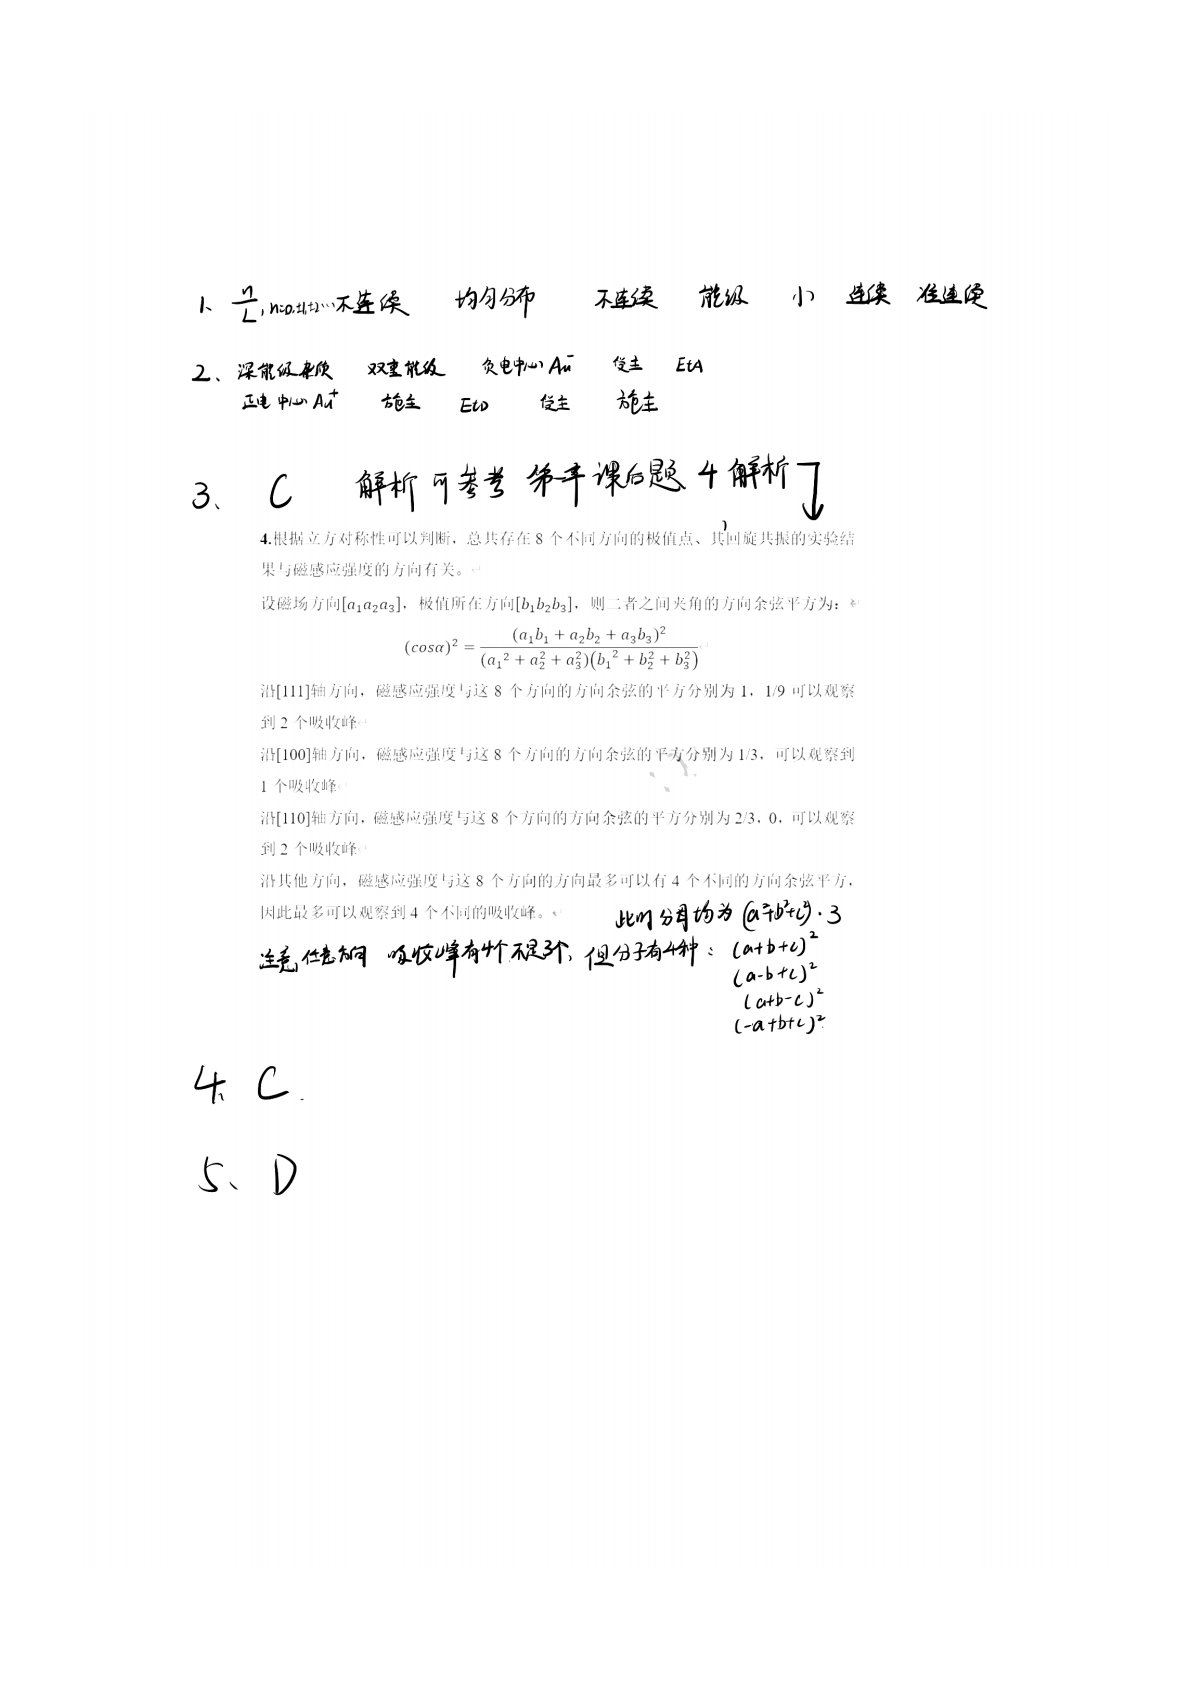 1、n/L, n=0,±1,±2…不连续 均匀分布 不连续 能级 小 连续 准连续
2、深能级杂质 双重能级 负电中心Au⁻ 受主 EtA
正电中心Au⁺ 施主 EtD 受主 施主
3、 C 解析可参考 第 章 课后题 4 解析
4.根据立方对称性可以判断，总共存在 8 个不同方向的极值点、其回旋共振的实验结
果与磁感应强度的方向有关。
设磁场方向[a₁a₂a₃]，极值所在方向[b₁b₂b₃]，则二者之间夹角的方向余弦平方为：
(cosα)² = (a₁b₁ + a₂b₂ + a₃b₃)² / (a₁² + a₂² + a₃²)(b₁² + b₂² + b₃²)
沿[111]轴方向，磁感应强度与这 8 个方向的方向余弦的平方分别为 1，1/9 可以观察
到 2 个吸收峰
沿[100]轴方向，磁感应强度与这 8 个方向的方向余弦的平方分别为 1/3，可以观察到
1 个吸收峰
沿[110]轴方向，磁感应强度与这 8 个方向的方向余弦的平方分别为 2/3，0，可以观察
到 2 个吸收峰
沿其他方向，磁感应强度与这 8 个方向的方向最多可以有 4 个不同的方向余弦平方，
因此最多可以观察到 4 个不同的吸收峰。 此时分母均为 (a²+b²+c²)·3
注意,任意方向 吸收峰有4个不是3个，但分子有4种：(a+b+c)²
(a-b+c)²
(a+b-c)²
(-a+b+c)²
4、C.
5、D